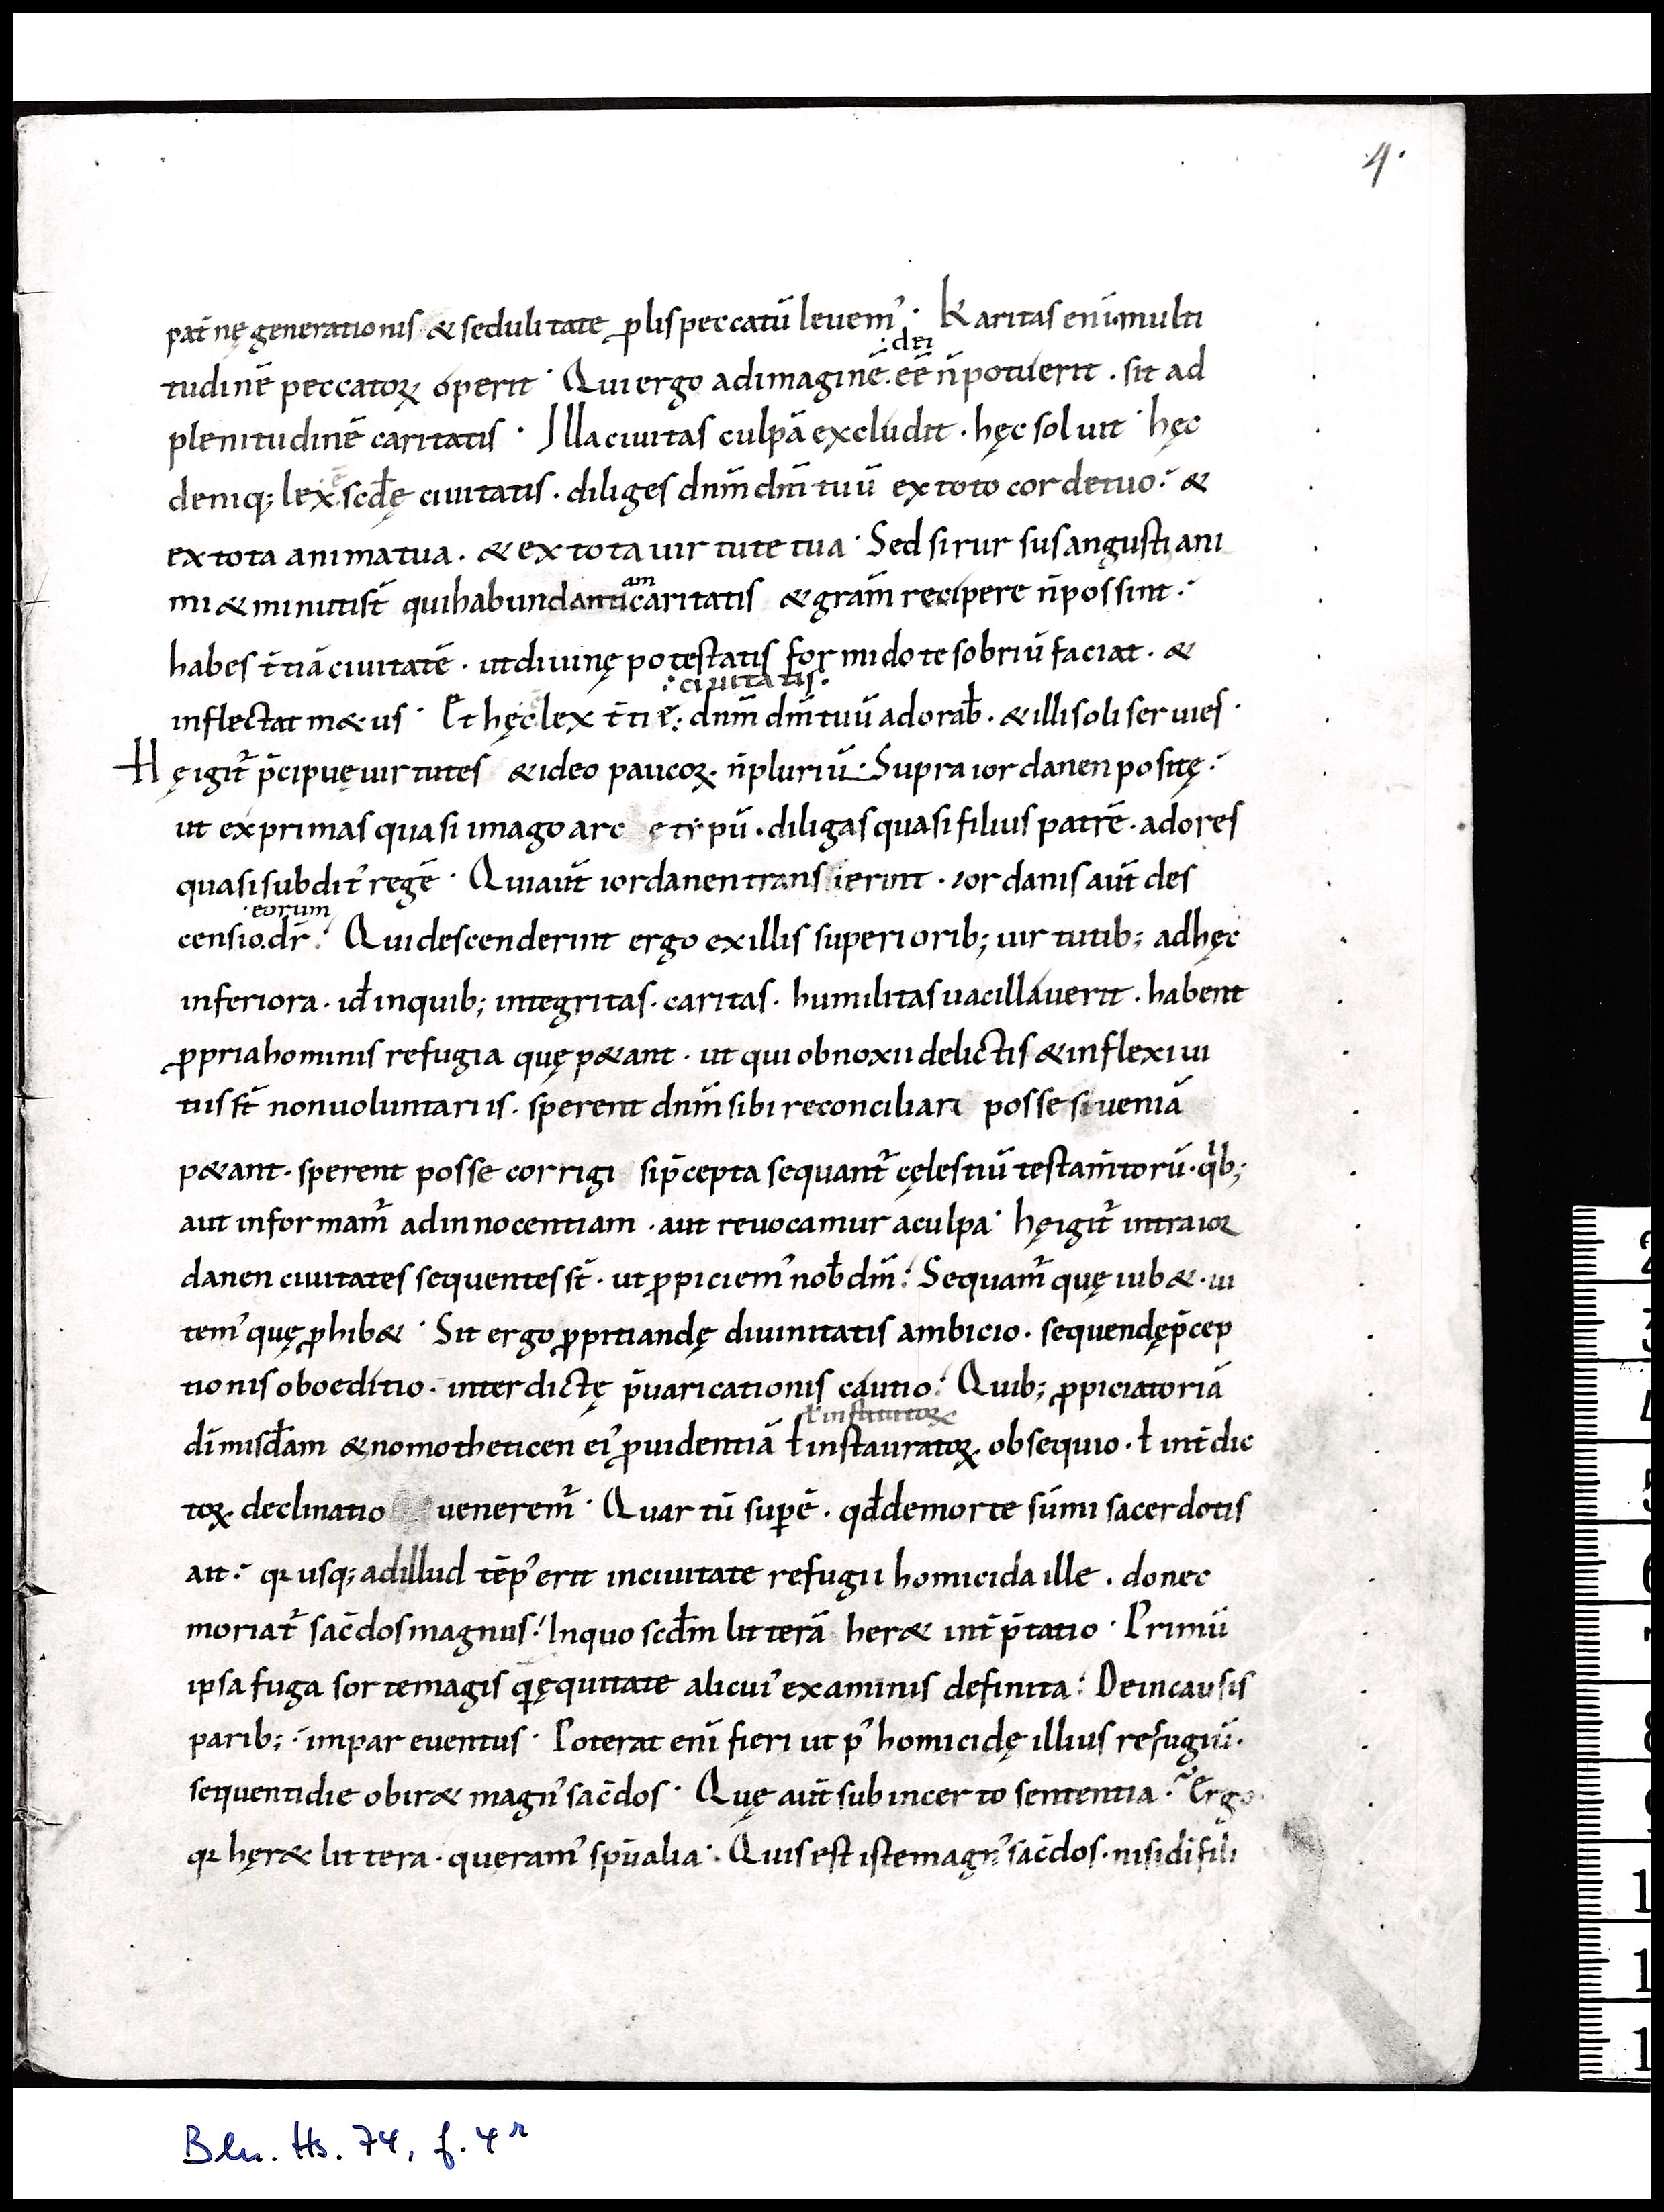 4.
pat̄nę generationis & sedulitate ꝓlis peccatū leuem᾽. Karitas enī multi
dei
tudinē peccatoꝝ operit. Qui ergo ad imaginē. eē n̄ potuerit. sit ad
plenitudinē caritatis. Illa ciuitas culpā excludit. hęc soluit. hęc
deniq; lex ē scđę ciuitatis. diliges dn̄m dm̄ tuū ex toto corde tuo. &
ex tota anima tua. & ex tota uirtute tua. Sed si rursus angusti ani
am
mi & minuti st̄ qui habundanti caritatis & grām recipere n̄ possint.
habes t̄tiā ciuitatē. ut diuinę potestatis formido te sobriū faciat. &
ciuitatis.
inflectat m&us. Et hęc lex t̄tię: dn̄m dm̄ tuū adorab̄. & illi soli seruies.
Hę igit᷑ p̄cipuę uirtutes & ideo paucoꝝ. n̄ pluriū. Supra iordanen positę.
ut exprimas quasi imago arc etẏpū. diligas quasi filius patrē. adores
quasi subdit᾽ regē. Qui aūt iordanen transierint. iordanis aūt des
eorum
censio. dr̄. Qui descenderint ergo ex illis superiorib; uirtutib; ad hęc
inferiora. iđ in quib; integritas. caritas. humilitas uacillauerit. habent
ꝓpria hominis refugia quę p&ant. ut qui obnoxii delictis & inflexi ui
tiis st̄ non uoluntariis. sperent dn̄m sibi reconciliari posse si ueniā
p&ant. sperent posse corrigi si p̄cepta sequant᷑ cęlestiū testam̄torū. qͥb;
aut informam᷑ ad innocentiam. aut reuocamur a culpa. hę igit᷑ intra ioꝛ
danen ciuitates sequentes st̄. ut ꝓpiciem᾽ nob̄ dm̄. Sequam᷑ quę iub&. ui
tem᾽ quę ꝓhib&. Sit ergo ꝓpitiandę diuinitatis ambicio. sequendę p̄cep
tionis oboeditio. interdictę p̄uaricationis cautio. Quib; ꝓpiciatoriā
ł institutoꝝ
dī misđam & nomotheticen ei᾽ ꝓuidentiā ł instauratoꝝ. obsequio. ł int̄dic
toꝝ. declinatio uenerem᷑. Quartū sup̄ē. qđ de morte sūmi sacerdotis
ait. qꝛ usq; ad illud tēp᾽ erit in ciuitate refugii homicida ille. donec
moriat᷑ sac̄dos magnus. In quo scđm litterā her& int̄p̄tatio. Primū
ipsa fuga sorte magis q̄ ęquitate alicui᾽ examinis definita. Dein causis
parib; impar euentus. Poterat enī fieri ut p᾽ homicidę illius refugiū.
sequenti die obir& magn᾽ sac̄dos. Quę aūt sub incerto sententia. Ergo
qꝛ hęr& littera. queram᾽ sp̄ualia. Quis est iste magn᾽ sac̄dos. nisi dī fili
Bln. Hs. 74, f. 4r
2
3
4
5
6
7
8
9
1
1
1